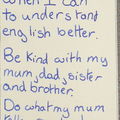 when I can
to understant
english better.
Be kind with my
mum, dad, sister
and brother.
Do what my mum